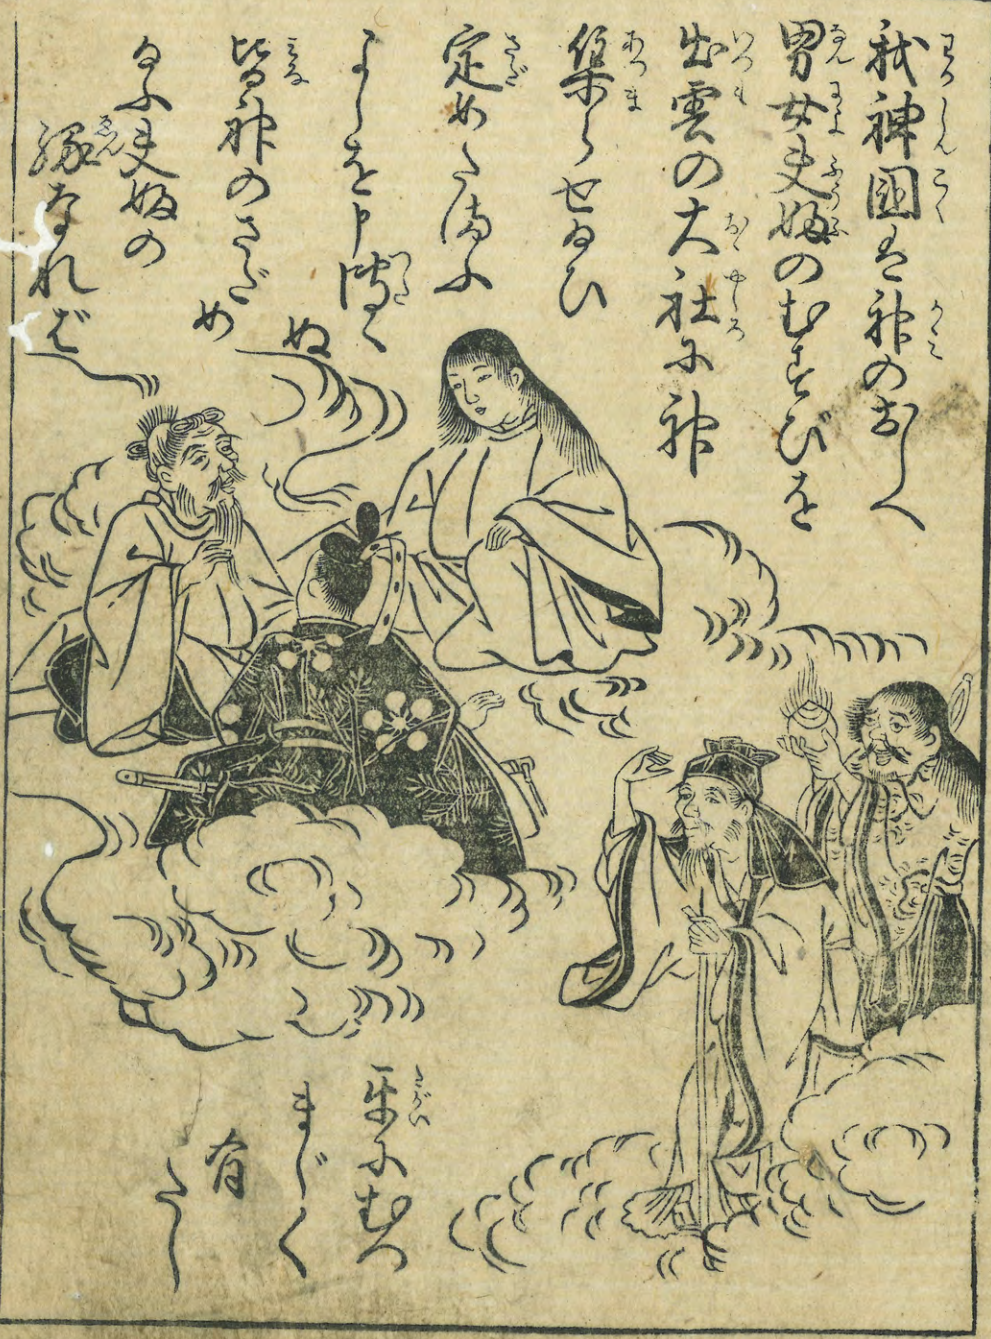 我神國は神のおしへ
男女夫婦のむすびを
出雲の大社に神
集らせ給ひ
定めたまふ
よしを申傳へ
ぬ
皆神のさだめ
給ふ夫婦の
縁なれば
互にむつ
まじく
有
たし